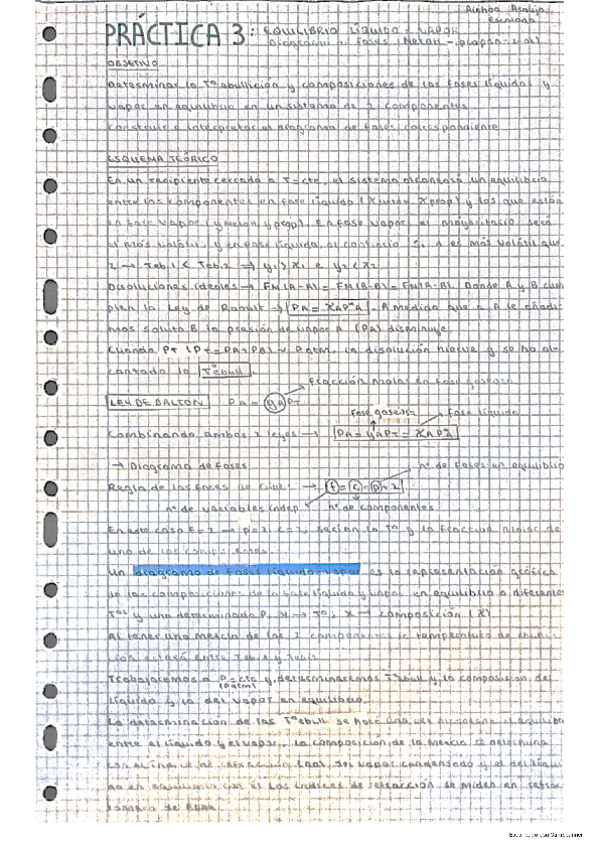 Ainhoa Araujo
Escalada
PRÁCTICA 3: EQUILIBRIO LÍQUIDO - VAPOR
Diagrama de fases (MetOH - propan-1-ol)
OBJETIVO
Determinar la Tª ebullición y composiciones de las fases líquida y
vapor en equilibrio en un sistema de 2 componentes.
Construir e interpretar el diagrama de fases correspondiente
ESQUEMA TEÓRICO
En un recipiente cerrado a T=cte, el sistema alcanzará un equilibrio
entre los componentes en fase líquida y los que están
en fase vapor. En fase vapor, el mayoritario será
el más volátil, y en fase líquida, al contrario. Si 1 es más volátil que
2 → Teb.1 < Teb.2 → y1 > x1 e y2 < x2
Disoluciones ideales → FM(A-A) = FM(B-B) = FM(A-B). Donde A y B cum
plen la Ley de Raoult → PA = XA PºA. A medida que a A le añadi
mos soluto B la presión de vapor A (PA) disminuye.
Cuando PT (PT = PA + PB) ~ Patm, la disolución hierve y se ha al-
canzado la Tªebull.
fracción molar en fase gaseosa
LEY DE DALTON PA = yA PT
fase gaseosa fase líquida
Combinando ambas 2 leyes → PA = yA PT = XA PºA
→ Diagrama de fases
nº de fases en equilibrio
Regla de las fases de Gibbs → f = c - p + 2
nº de variables indep. nº de componentes
En este caso F=2 → p=2, c=2, serían la Tª y la fracción molar de
uno de los componentes.
Un diagrama de fases líquido-vapor es la representación gráfica
de las composiciones de la fase líquida y vapor en equilibrio a diferentes
Tªs y una determinada P. y → Tª, x → composición (X)
Al tener una mezcla de los 2 componentes la temperatura de ebulli-
ción estará entre Teb.1 y Teb.2
Trabajaremos a P=cte y determinaremos Tªebull y la composición del
(Patm)
líquido y la del vapor en equilibrio.
La determinación de las Tªebull se hace una vez el equilibrio
entre el líquido y el vapor. La composición de la mezcla se determina
con el índice de refracción del vapor condensado y el del líqui-
do en equilibrio con él. Los índices de refracción se miden en refrac-
tómetro de Abbe.